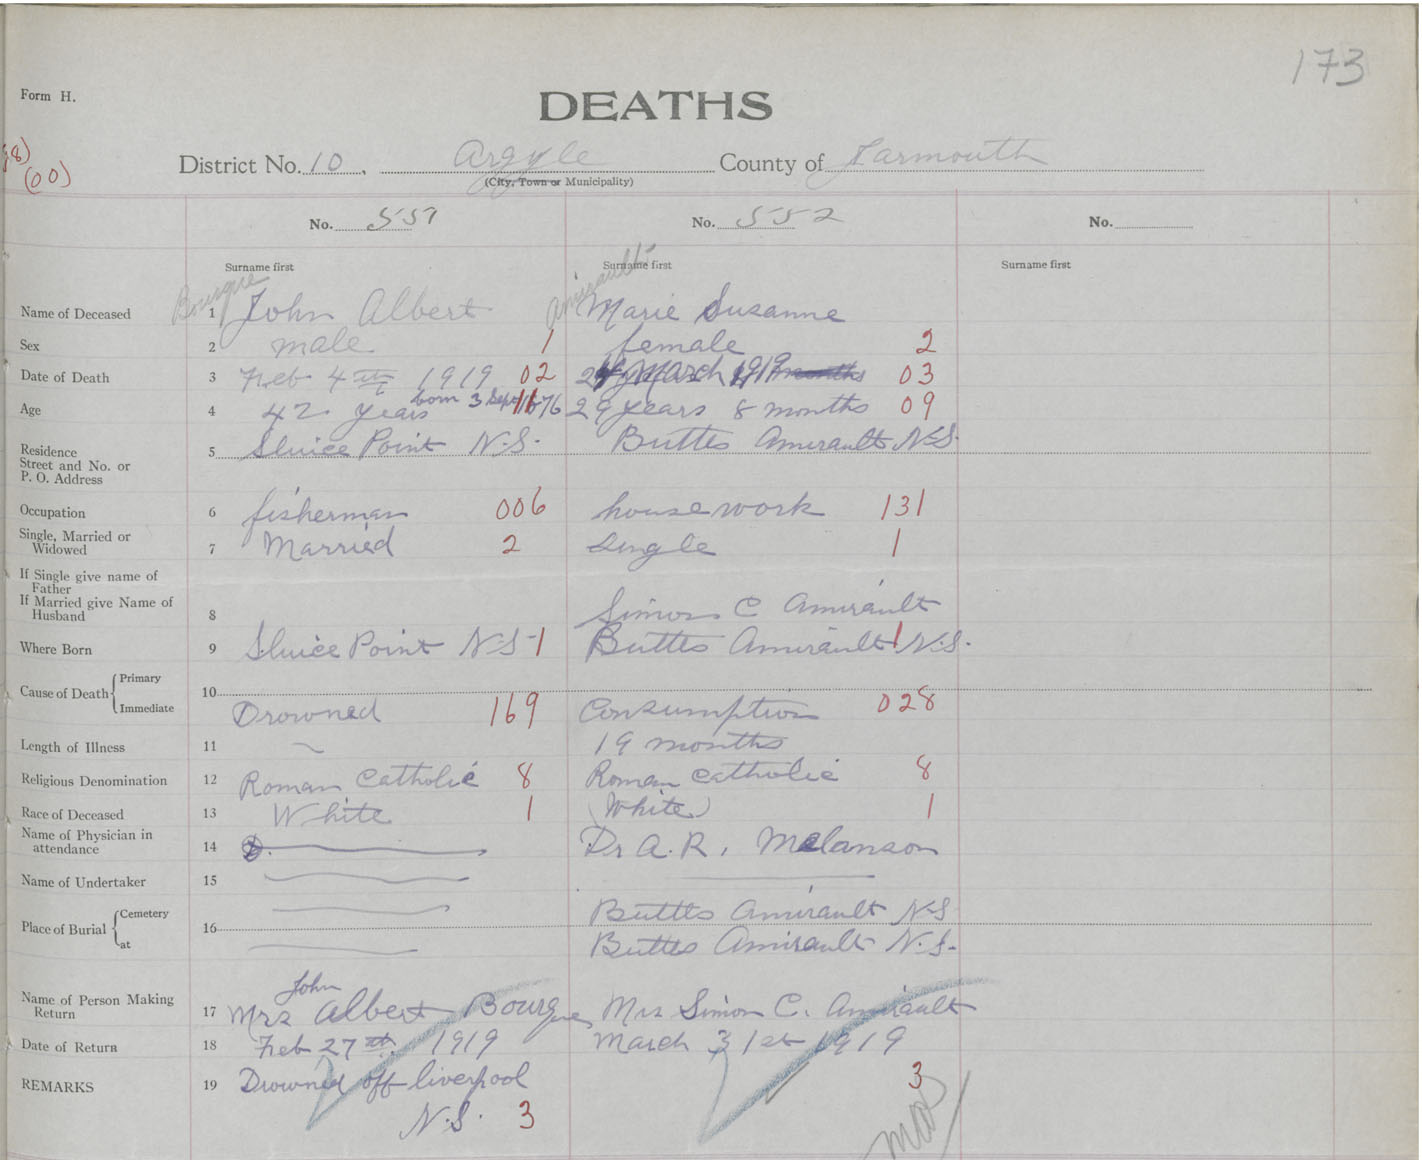 173
Form H.
DEATHS
(00)
District No. 10, Argyle County of Yarmouth
(City, Town or Municipality)
No. 551 No. 552 No.
Surname first Surname first Surname first
Bourque Amirault
Name of Deceased 1 John Albert Marie Susanne
Sex 2 male 1 female 2
Date of Death 3 Feb 4th 1919 02 March 1919 months 03
born 3 Sept 1876
Age 4 42 years 11 29 years 8 months 09
Residence
Street and No. or
P. O. Address
5 Sluice Point N.S. Buttes Amirault N.S.
Occupation 6 fisherman 006 housework 131
Single, Married or
Widowed
7 Married 2 Single 1
If Single give name of
Father
If Married give Name of
Husband
8 Simon C Amirault
Where Born 9 Sluice Point N-S 1 Buttes Amirault 1 N.S.
Cause of Death Primary 10
Immediate Drowned 169 Consumption 028
Length of Illness 11 19 months
Religious Denomination 12 Roman Catholic 8 Roman Catholic 8
Race of Deceased 13 White 1 (White) 1
Name of Physician in
attendance
14 D. Dr A. R. Melanson
Name of Undertaker 15
Place of Burial Cemetery 16 Buttes Amirault N-S
at Buttes Amirault N.S.
John
Name of Person Making
Return
17 Mrs Albert Bourque Mrs Simon C. Amirault
Date of Return 18 Feb 27th 1919 March 31st 1919
REMARKS 19 Drowned off liverpool 3
N.S. 3